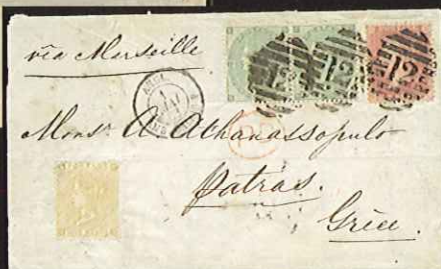 via Marseille
12
12
12
Monsr. A. Athanassopulo
Patras.
Grèce.